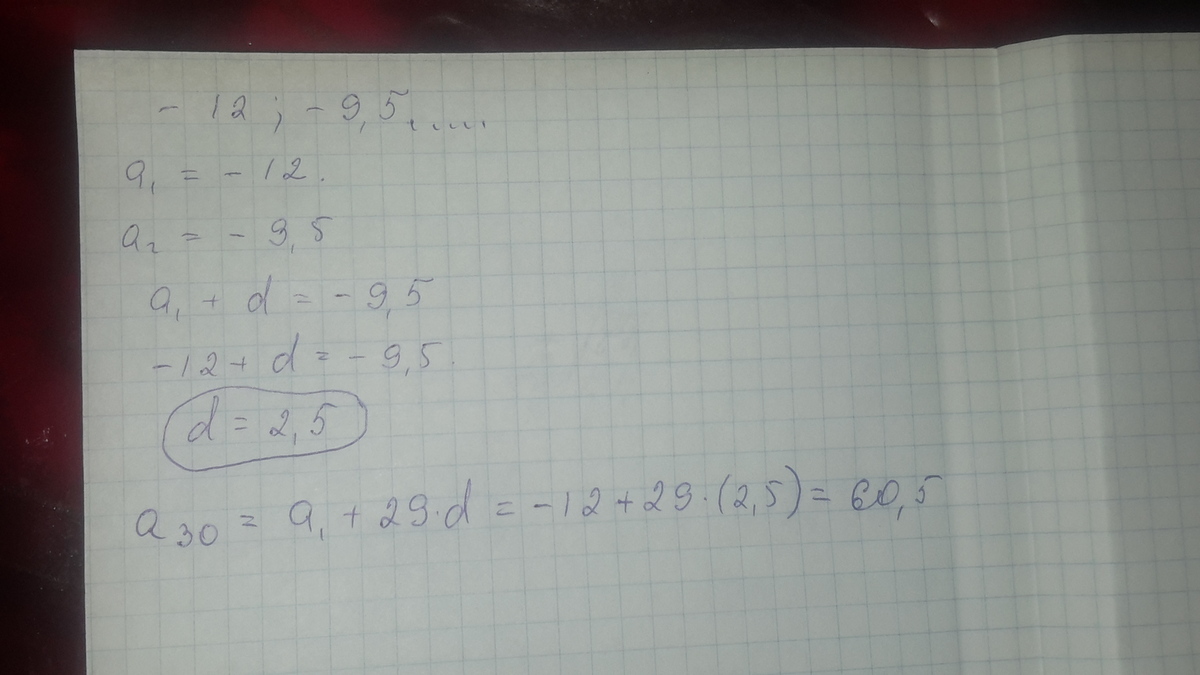 - 12 ; - 9,5, ....
a₁ = - 12.
a₂ = - 9,5
a₁ + d = - 9,5
-12 + d = - 9,5.
d = 2,5
a₃₀ = a₁ + 29·d = -12 + 29·(2,5) = 60,5